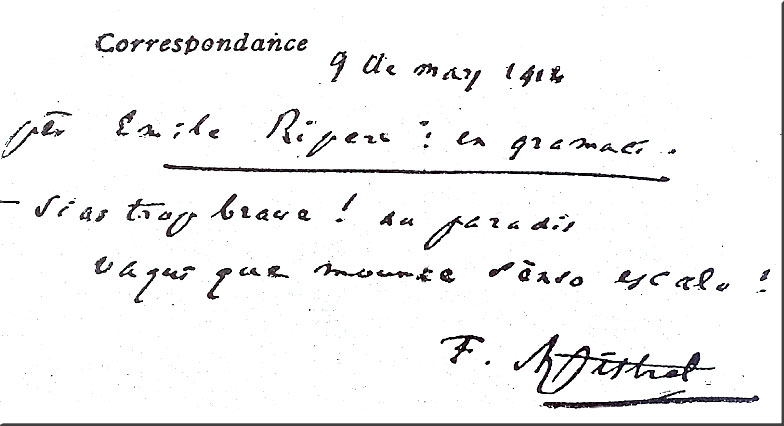 Correspondance
9 de may 1914
pèr Emile Ripert : en gramaci.
– Sias trop brave ! au paradis
vaqui que mounte sènso escalo !
F. Mistral